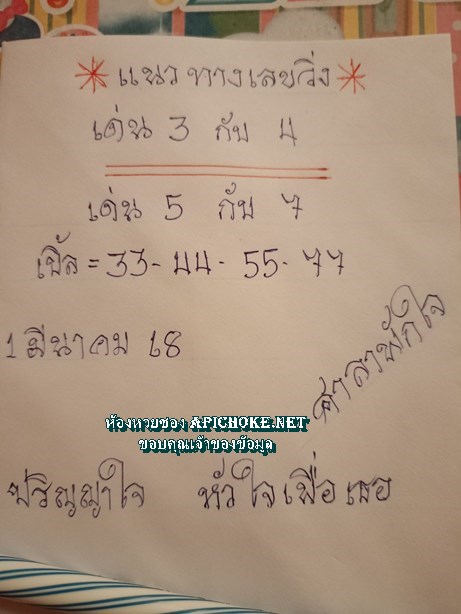 * แนวทางเลขวิ่ง *
เด่น 3 กับ 4
เด่น 5 กับ 7
เบิ้ล = 33 - 44 - 55 - 77
1 มีนาคม 68
ศาลาพักใจ
ห้องหวยซอง APICHOKE.NET
ขอบคุณเจ้าของข้อมูล
ปริญญาใจ หัวใจเพื่อเธอ